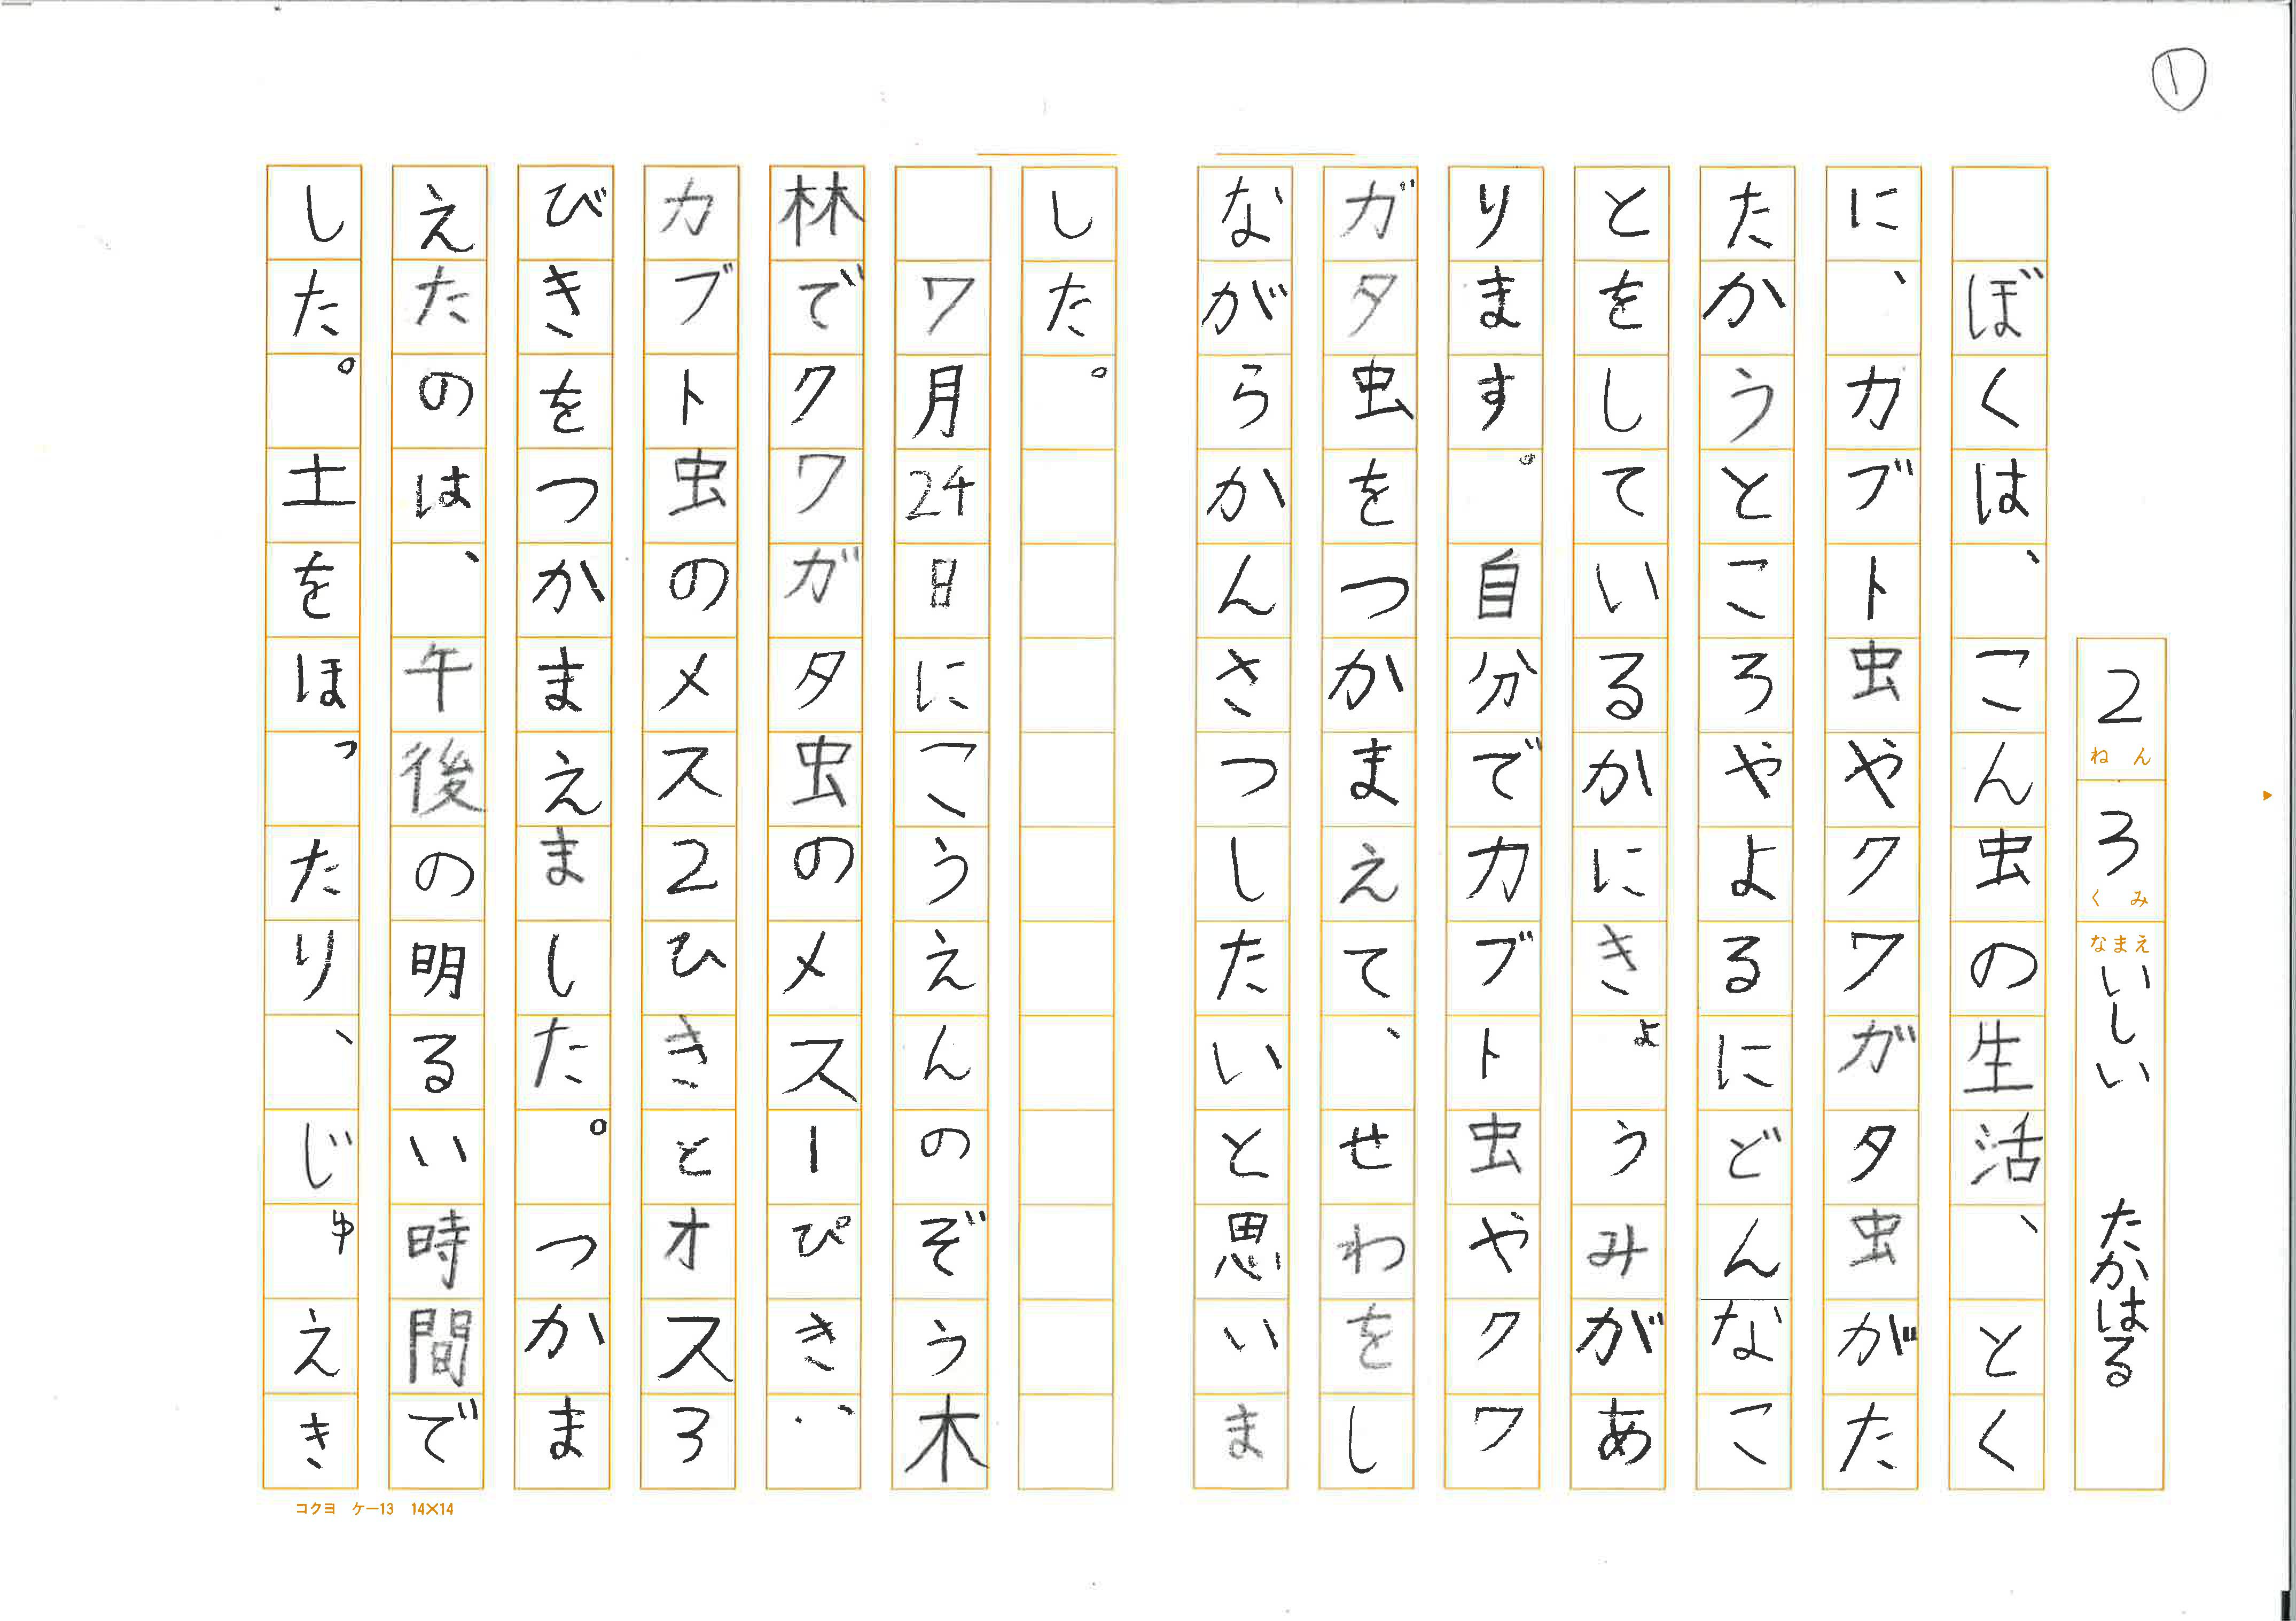 ①
2ねん3くみなまえいしい たかはる
ぼくは、こん虫の生活、とく
に、カブト虫やクワガタ虫がた
たかうところやよるにどんなこ
とをしているかにきょうみがあ
ります。自分でカブト虫やクワ
ガタ虫をつかまえて、せわをし
ながらかんさつしたいと思いま
した。
7月24日にこうえんのぞう木
林でクワガタ虫のメス1ぴき、
カブト虫のメス2ひきとオス3
びきをつかまえました。つかま
えたのは、午後の明るい時間で
した。土をほったり、じゅえき
コクヨ ケー13 14×14